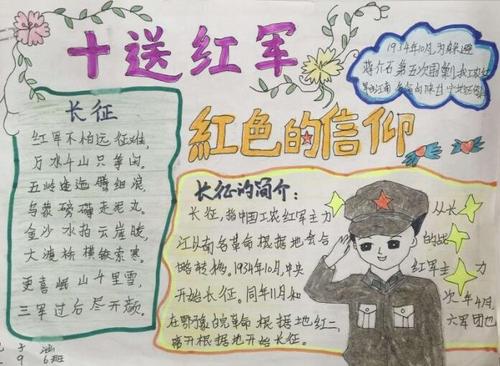 十送红军
1934年10月,为躲避
蒋介石第五次围剿
紅色的信仰
长征
红军不怕远征难,
万水千山只等闲。
五岭逶迤腾细浪,
乌蒙磅礴走泥丸。
金沙水拍云崖暖,
大渡桥横铁索寒。
更喜岷山千里雪,
三军过后尽开颜。
长征的简介:
长征,指中国工农红军主力 从长
江以南各革命根据地会合 的战
略转移。1934年10月,中央 红军主力
开始长征,同年11月和 次年4月,
在鄂豫皖革命根据地红二 六军团也
离开根据地开始长征。
子涵
6班